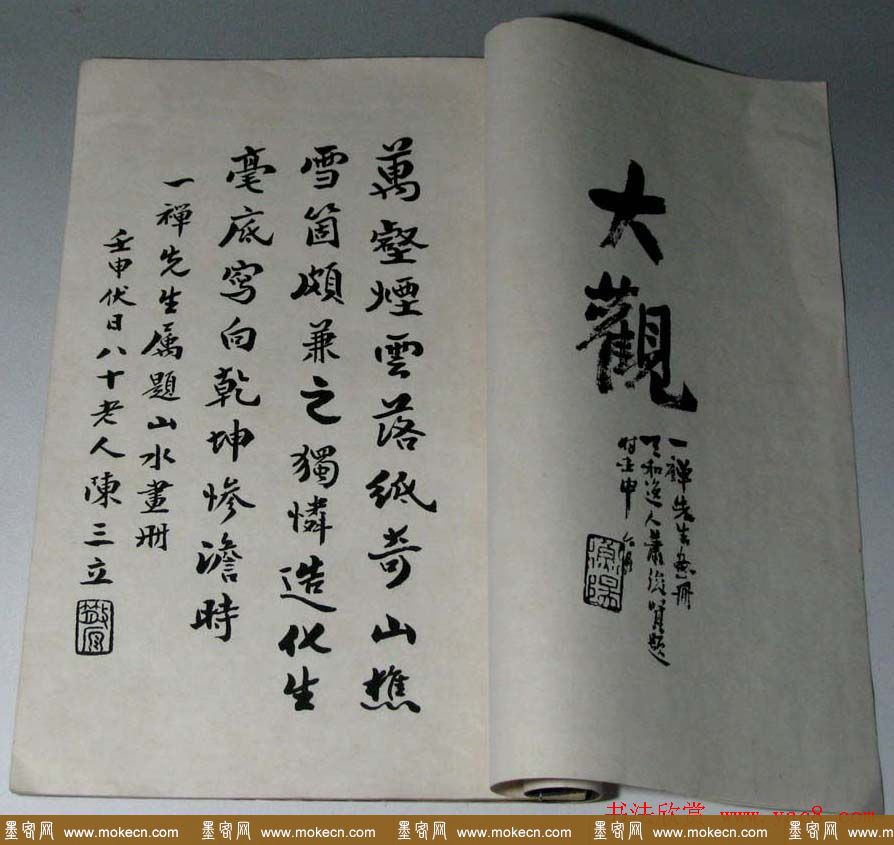 大觀
一禪先生畫冊
天和逸人蕭俊賢題
時壬申
萬壑煙雲落紙奇山樵
雪箇頗兼之獨憐造化生
毫底寫向乾坤慘澹時
一禪先生属題山水畫冊
壬申伏日八十老人陳三立
书法欣赏 www.yac8.com
墨客网 www.mokecn.com 墨客网 www.mokecn.com 墨客网 www.mokecn.com 墨客网 www.mokecn.com